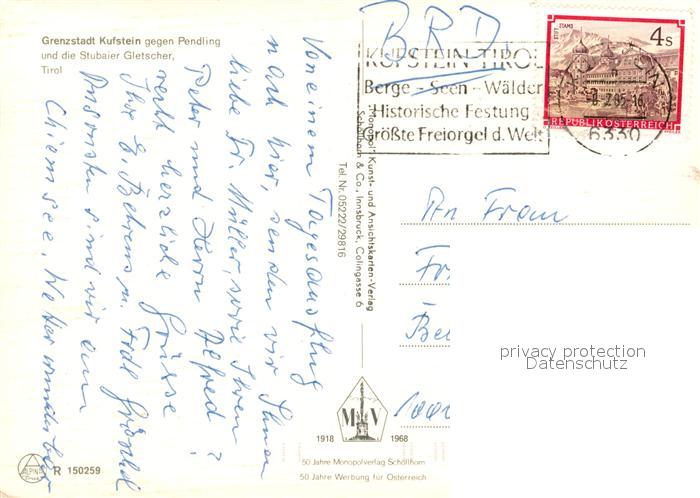 Grenzstadt Kufstein gegen Pendling
und die Stubaier Gletscher,
Tirol
Von einem Tagesausflug
nach hier, senden wir Ihnen
liebe Fr. Müller, sowie Ihrem
Peter und Herrn Alfred?
recht herzliche Grüsse
Ihre E. Behrens u.
Ansonsten sind wir am
Chiemsee. Wetter wunderbar
R 150259
"Monopol" Kunst- und Ansichtskarten-Verlag
Schöllhorn & Co., Innsbruck, Colingasse 6
Tel. Nr. 05222/29816
M V
1918 1968
50 Jahre Monopolverlag Schöllhorn
50 Jahre Werbung für Österreich
BRD
KUFSTEIN-TIROL
Berge - Seen - Wälder
Historische Festung
größte Freiorgel d. Welt
STIFT STAMS
4 S
REPUBLIK ÖSTERREICH
6330
An Frau
privacy protection
Datenschutz